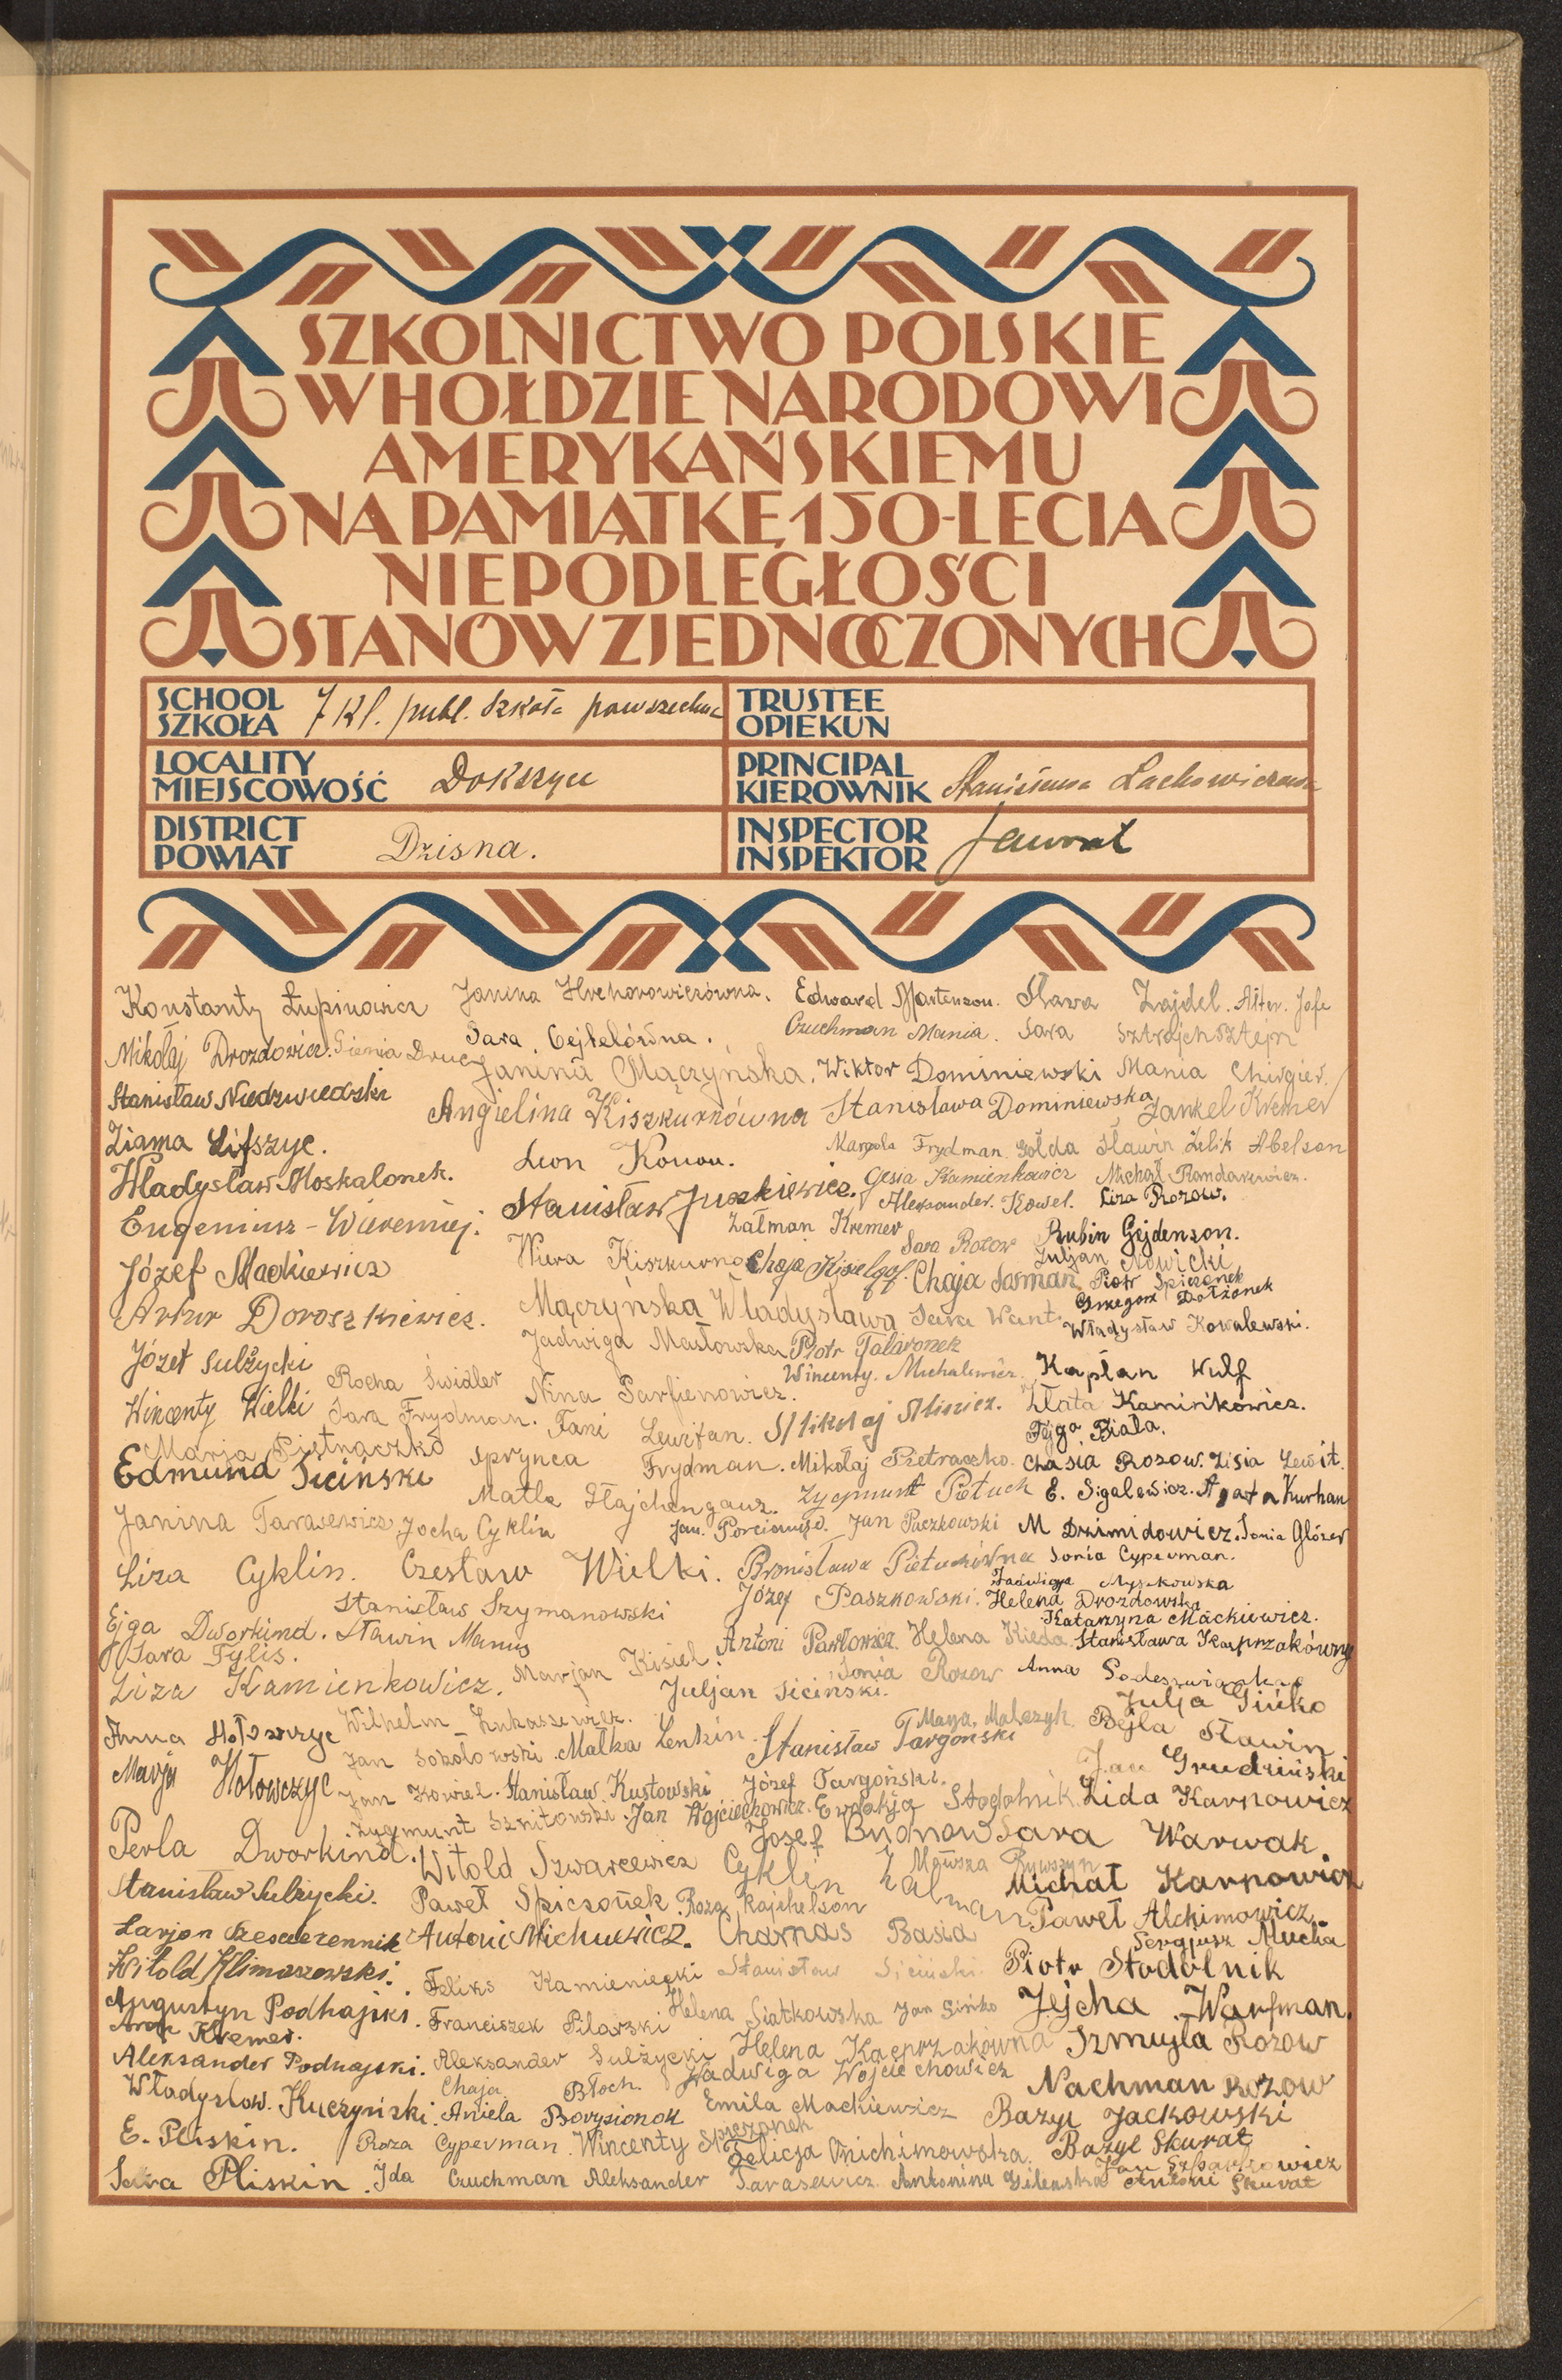 SZKOLNICTWO POLSKIE
W HOŁDZIE NARODOWI
AMERYKAŃSKIEMU
NA PAMIĄTKĘ 150-LECIA
NIEPODLEGŁOŚCI
STANÓW ZJEDNOCZONYCH
SCHOOL
SZKOŁA 7 kl. publ. Szkoła powszechna
TRUSTEE
OPIEKUN
LOCALITY
MIEJSCOWOŚĆ Dokszyce
PRINCIPAL
KIEROWNIK Lachowiczowa
DISTRICT
POWIAT Dzisna.
INSPECTOR
INSPEKTOR
Konstanty Łupinowicz Janina Hrehorowiczówna. Edward Martenson. Sława Zajdel. Alter. Jofe
Mikołaj Drozdowicz. Gienia Druc Sara Cejtelówna. Czuchman Mania. Sara Sztrejchsztejn
Janina Mączyńska. Wiktor Dominiewski Mania Chirgier.
Stanisław Niedzwiedzki Angielina Kiszkurnówna Stanisława Dominiewska Jankel Kremer
Ziama Lifszyc. Leon Konon. Margola Frydman. Gołda Sławin Zelik Abelson
Władysław Moskalonek. Gesia Kamienkowicz Michał Romdarewicz.
Stanisław Juszkiewicz. Aleksander. Kowel. Liza Rozow.
Eugeniusz - Wieremiej. Załman Kremer Sara Rozow Rubin Gejdenson.
Józef Mackiewicz Wiera Kiszkurno Chaja Kisielgof. Chaja Sosman Juljan Nowicki
Piotr Spiczonek
Artur Doroszkiewicz. Mączyńska Władysława Sara Want. Grzegorz Dołżonek
Józef Sulżycki Jadwiga Masłowska Piotr Talaronek Władysław Kowalewski.
Rocha Świdler Nina Parfienowicz. Wincenty. Michalewicz. Kaplan Wulf
Wincenty Wielki Sara Frydman. Fani Lewitan. Mikołaj Klinicz. Złata Kaminkowicz.
Marja Pietraczko Fejga Biała.
Edmund Siciński Sprynca Frydman. Mikołaj Pietraczko. Chasia Rozow. Zisia Lewit.
Matla Flajchengauz. Zygmunt Pietuch E. Sigalewicz. Agata Kurhan
Janina Tarasewicz Jocha Cyklin Jan Paczkowski M Dzimidowicz. Sonia Glózer
Liza Cyklin. Czesław Wielki. Bronisława Pietuchówna Sonia Cyperman.
Stanisław Szymanowski Józef Paszkowski. Jadwiga Myszkowska
Helena Drozdowska
Ejga Dworkind. Sławin Manus Katarzyna Mackiewicz.
Sara Fylis. Antoni Pawłowicz. Helena Kieda. Stanisława Kasprzakówny
Liza Kamienkowicz. Marjan Kisiel. Sonia Rozow Anna
Juljan Siciński. Julja Sińko
Anna Hołowczyc Wilhelm Łukaszewicz. Marja. Malczyk. Bejla Sławin
Jan Sokołowski. Małka Lenkin. Stanisław Targoński
Marja Hołowczyc Jan Kowiel. Stanisław Kustowski Józef Targoński. Jan Grudziński
Zygmunt Sznitowski. Jan Wojciechowicz. Ewdokja Stodolnik. Lida Karnowicz
Perla Dworkind. Josef Budnow Sara Warwak
Witold Szwarcewicz Cyklin Załman Mowsza Rywszyn
Michał Karnowicz
Stanisław Sulżycki. Paweł Spiczonek. Roza Rajchelson Paweł Alchimowicz.
Antoni Michniewicz. Charnas Basia Sergjusz Mucha
Witold Klimaszewski. Feliks Kamieniecki Stanisław Siciński. Piotr Stodolnik
Augustyn Podhajski. Franciszek Pilarski Helena Siatkowska Jan Sińko Jejcha Warfman.
Aron Kremer.
Aleksander Podhajski. Aleksander Sulżycki Helena Kacprzakówna Szmujla Rozow
Chaja Błoch. Jadwiga Wojciechowicz Nachman Rozow
Władysłow. Kuczyński. Aniela Borysionok Emila Mackiewicz Bazyl Jackowski
E. Pliskin. Roza Cyperman. Wincenty Spiczonek Felicja Michimowska. Bazyl Skurat
Sara Pliskin. Ida Czuchman Aleksander Tarasewicz. Antonina Gilewska Antoni Skurat